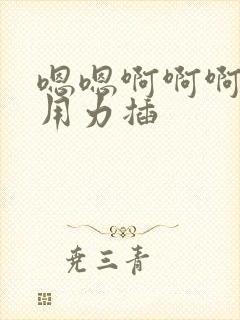 嗯嗯啊啊啊
用力插
尧三青